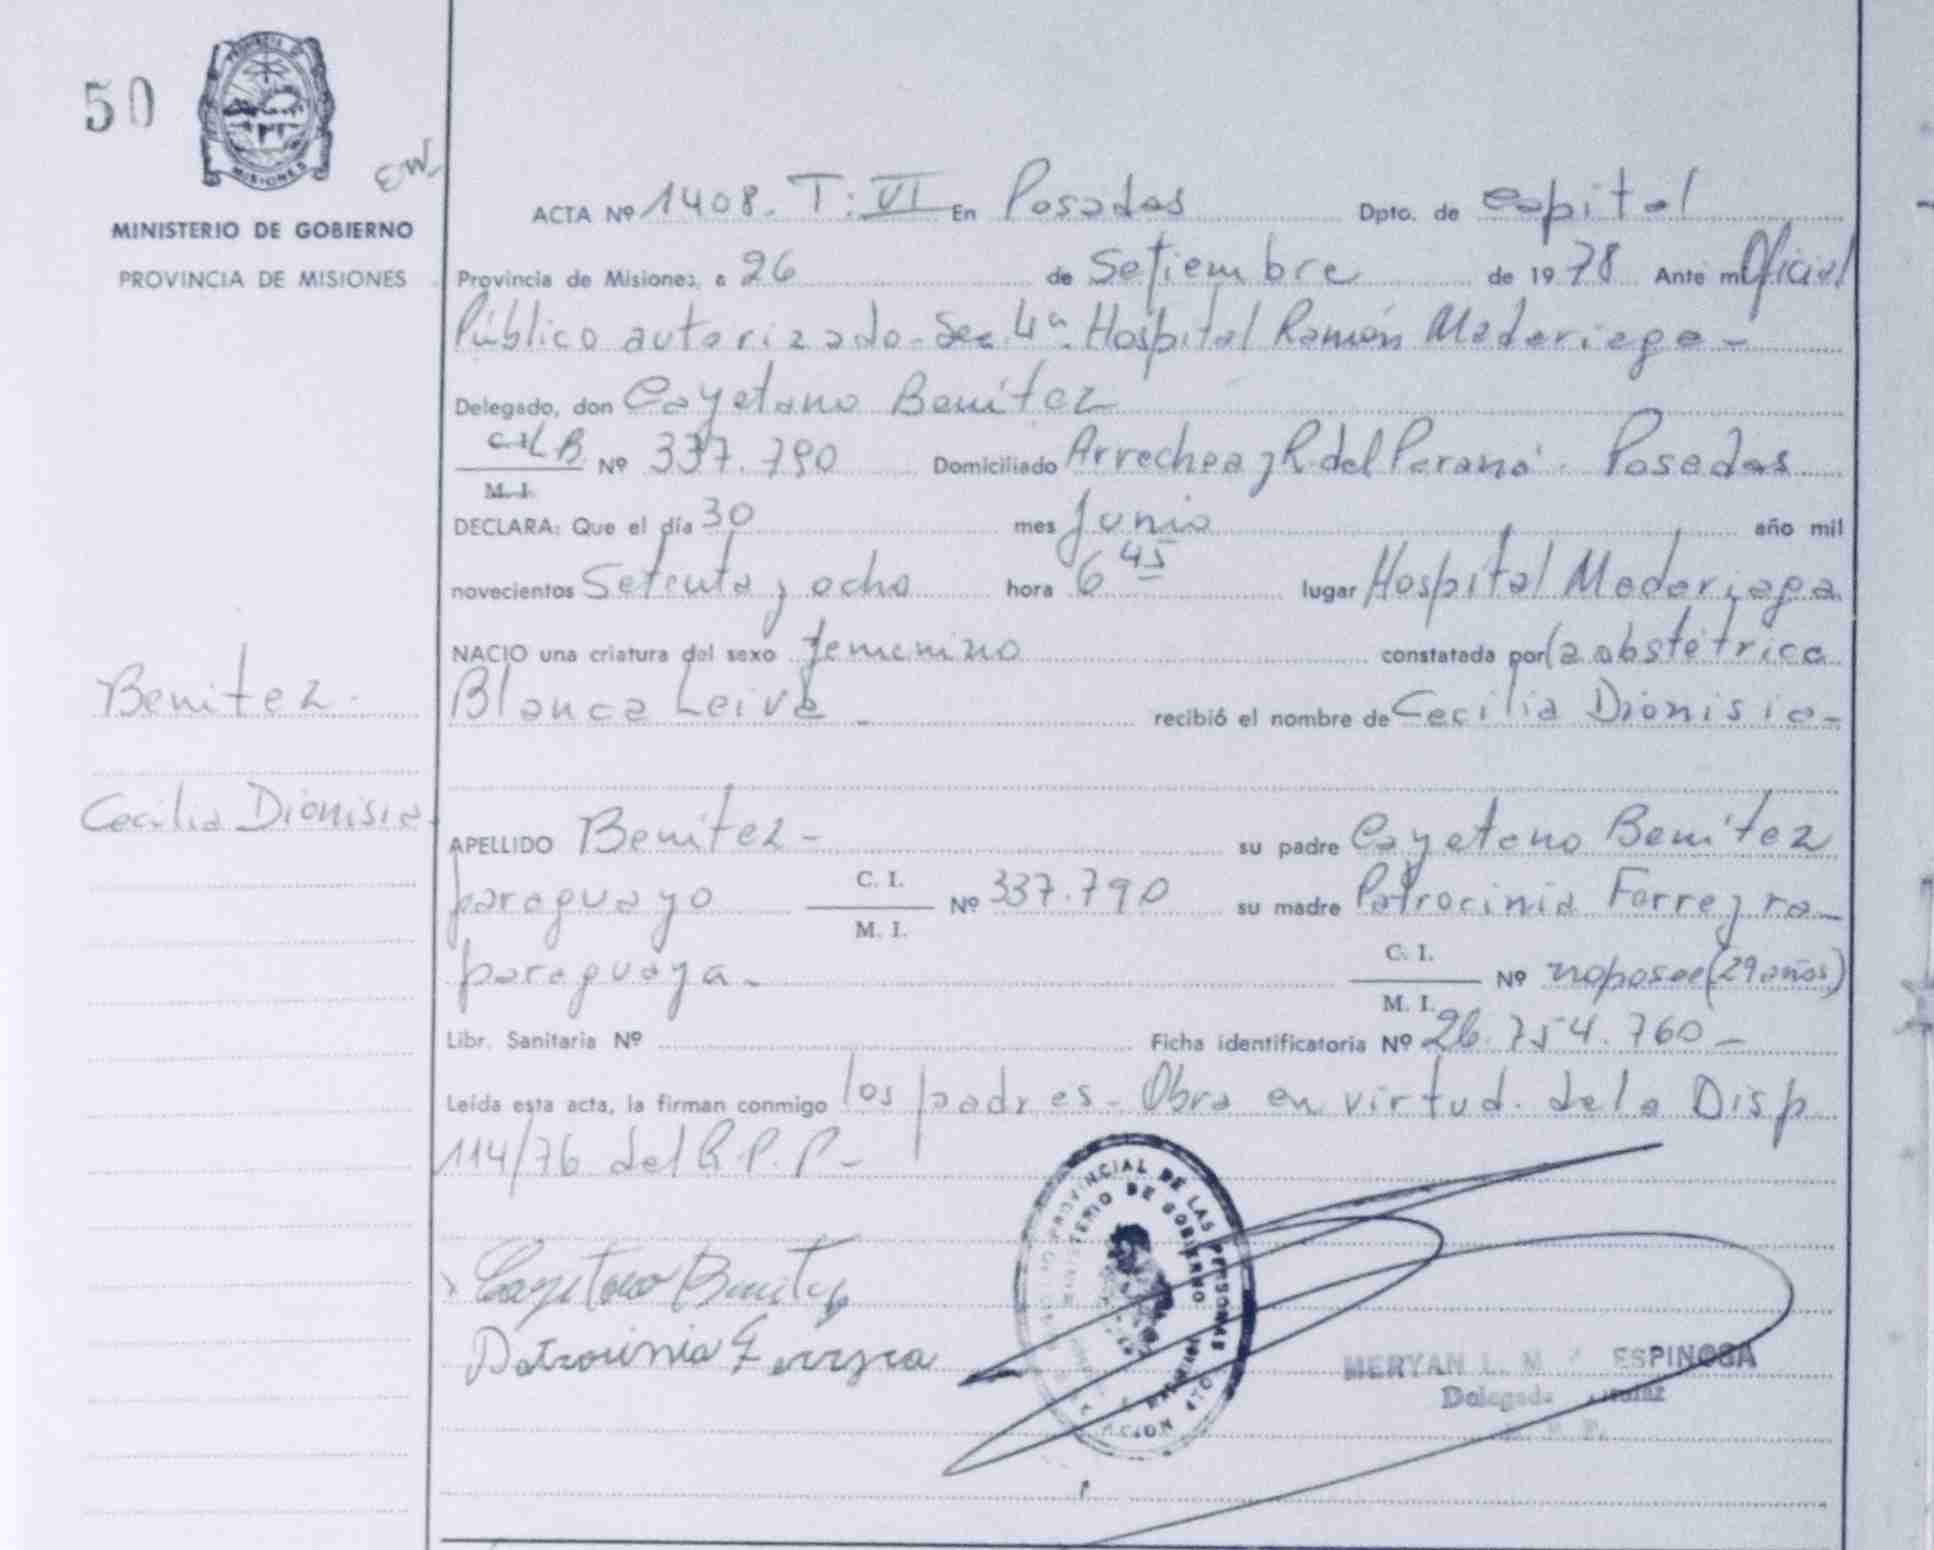 50
PROVINCIA DE
MISIONES
MINISTERIO DE GOBIERNO
PROVINCIA DE MISIONES
ACTA Nº 1408. T: VI En Posadas Dpto. de Capital
Provincia de Misiones, a 26 de Setiembre de 1978 Ante mí Oficial
Público autorizado - Sec. 4ª. Hospital Ramón Madariaga -
Delegado, don Cayetano Benítez
C.I. Nº 337.790 Domiciliado Arrechea y R. del Paraná. Posadas
M. I.
DECLARA: Que el día 30 mes Junio año mil
novecientos Setenta y ocho hora 6 45 lugar Hospital Madariaga
NACIO una criatura del sexo femenino constatada por la obstétrica
Blanca Leiva - recibió el nombre de Cecilia Dionisia -
Benitez -
Cecilia Dionisia
APELLIDO Benítez - su padre Cayetano Benítez
paraguayo C. I. M. I. Nº 337.790 su madre Patrocinia Ferreyra -
paraguaya - C. I. M. I. Nº no posee (29 años)
Libr. Sanitaria Nº Ficha identificatoria Nº 26.754.760 -
Leída esta acta, la firman conmigo los padres - Obra en virtud. de la Disp
114/76 del R.P.P -
Cayetano Benitez
Patrocinia Ferreyra
PROVINCIAL DE LAS PERSONAS
MINISTERIO DE GOBIERNO
MERYAN L. M ESPINOSA
Delegada